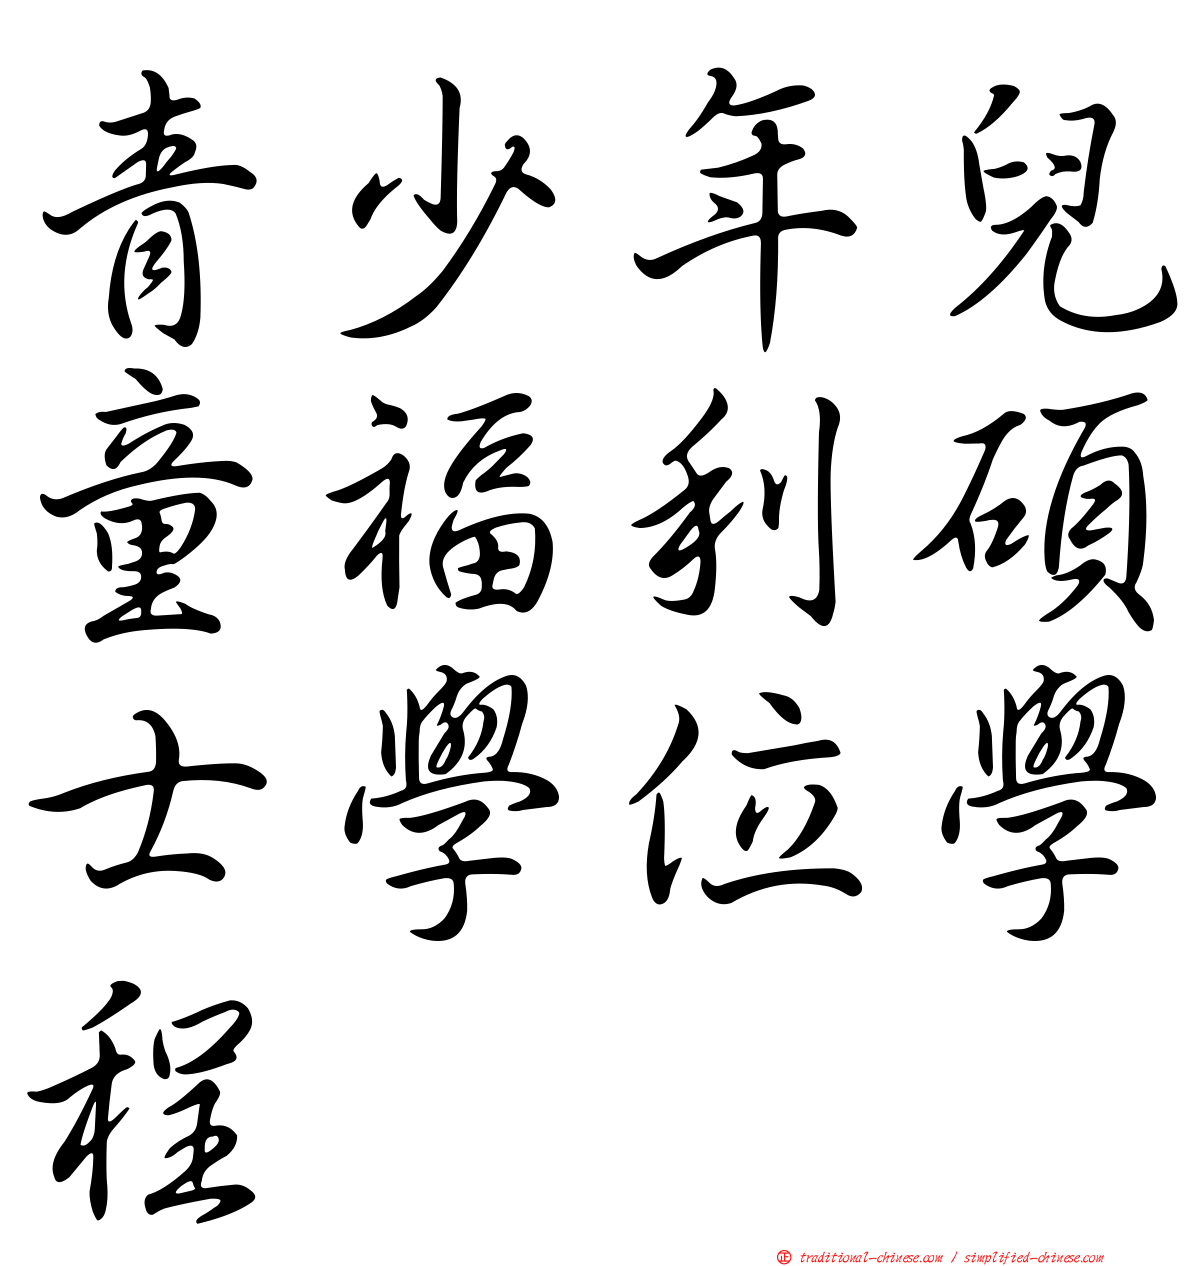 青少年兒
童福利碩
士學位學
程
正 traditional-chinese.com / simplified-chinese.com